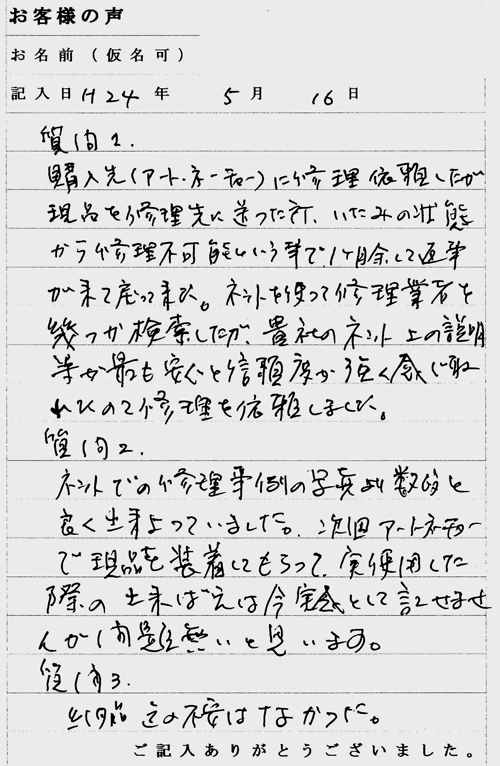 お客様の声
お名前（仮名可）
記入日 H24 年 5 月 16 日
質問1.
購入先(アートネーチャー)に修理依頼したが
現品を修理先に送った所、いたみの状態
から修理不可能という事で、1ヶ月余して返事
が来て戻って来た。ネットを使って修理業者を
幾つか検索したが、貴社のネット上の説明
等が最も安心と信頼度が強く感じ取
れたので修理を依頼しました。
質問2.
ネットでの修理事例の写真より数段と
良く出来上っていました。次回アートネーチャー
で現品を装着してもらって、実使用した
際の出来ばえは今実感として話せませ
んが問題無いと思います。
質問3.
納品迄の不安はなかった。
ご記入ありがとうございました。